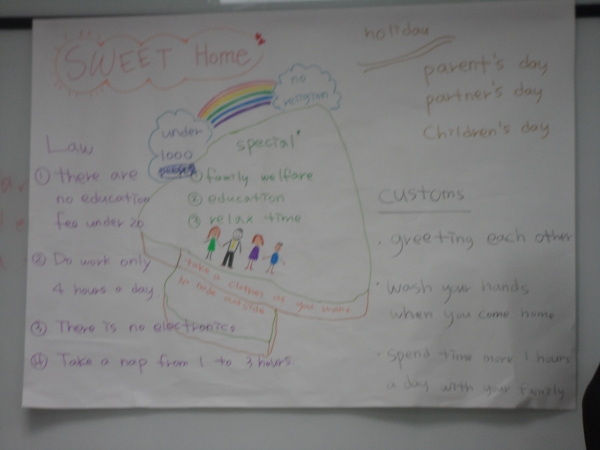 SWEET Home
holiday
parent's day
partner's day
Children's day
no
religion
under
1000
people
special
① family welfare
② education
③ relax time
Law
① there are
no education
fee under 20
② Do work only
4 hours a day
③ There is no electronics
④ Take a nap from 1 to 3 hours
take a clothes as you want
outside
customs
· greeting each other
· wash your hands
when you come home
· spend time more 1 hours
a day with your family